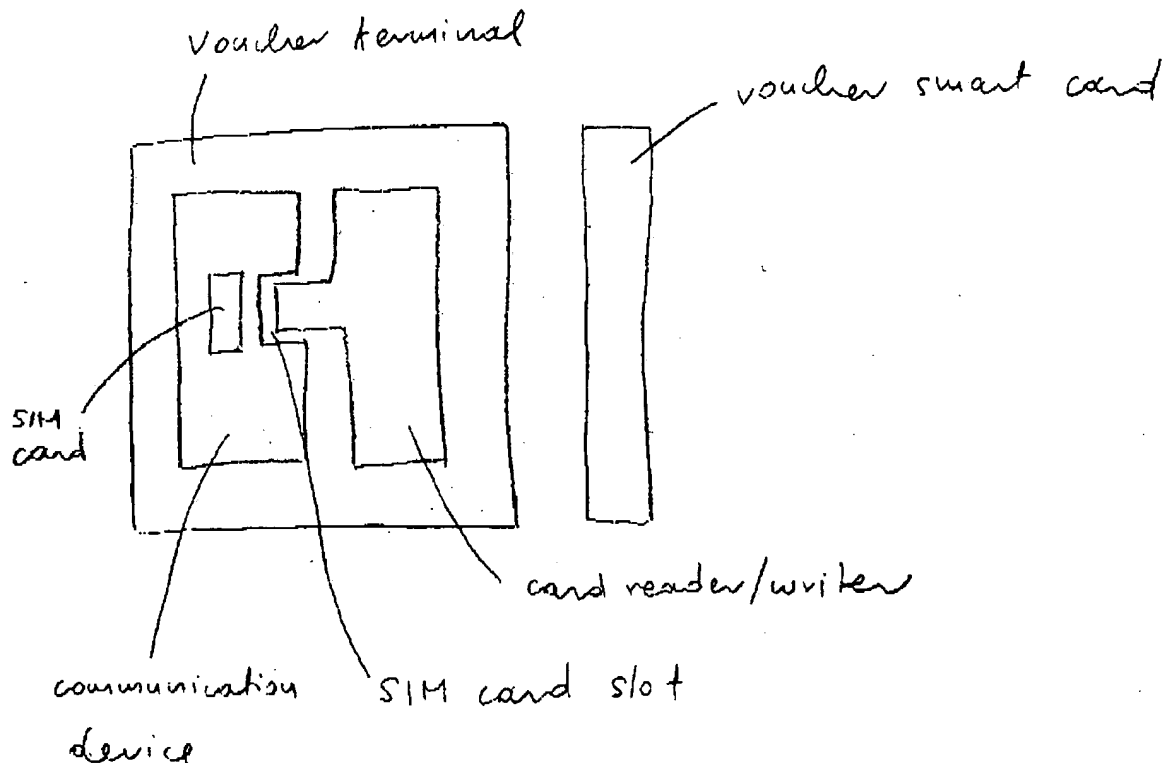 voucher terminal
voucher smart card
SIM
card
card reader/writer
communication
device
SIM card slot